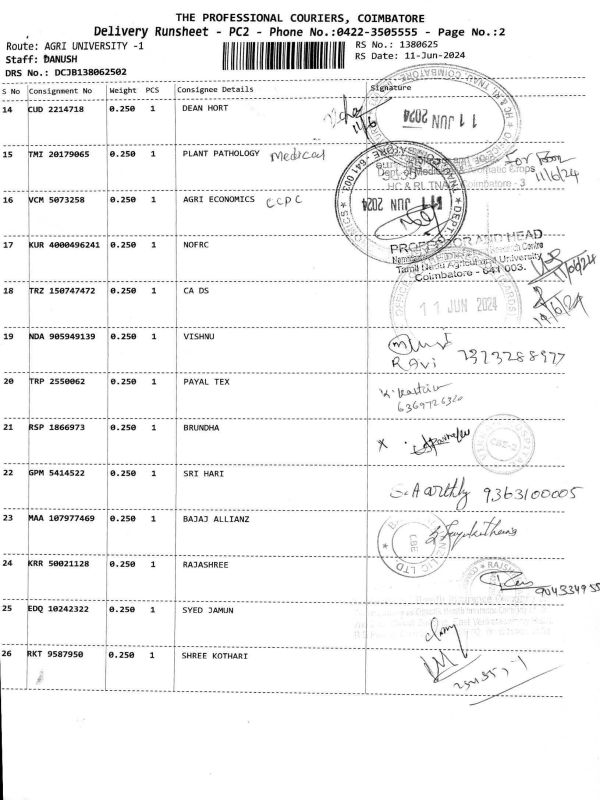 THE PROFESSIONAL COURIERS, COIMBATORE
Delivery Runsheet - PC2 - Phone No.:0422-3505555 - Page No.:2
Route: AGRI UNIVERSITY -1
RS No.: 1380625
Staff: DANUSH
RS Date: 11-Jun-2024
DRS No.: DCJB138062502
S No Consignment No Weight PCS Consignee Details Signature
14 CUD 2214718 0.250 1 DEAN HORT
11/6
11 JUN 2024
15 TMI 20179065 0.250 1 PLANT PATHOLOGY Medical
For
11/6/24
HC & RI, TNAU, Coimbatore - 3
16 VCM 5073258 0.250 1 AGRI ECONOMICS CCPC
JUN 2024
PROFESSOR AND HEAD
17 KUR 4000496241 0.250 1 NOFRC
Tamil Nadu Agricultural University
Coimbatore - 641 003.
11/06/24
18 TRZ 150747472 0.250 1 CA DS
11 JUN 2024
19 NDA 905949139 0.250 1 VISHNU
Ravi 7373288977
20 TRP 2550062 0.250 1 PAYAL TEX
21 RSP 1866973 0.250 1 BRUNDHA
X
CBE-3
22 GPM 5414522 0.250 1 SRI HARI
S. Aarthly 9363100005
23 MAA 107977469 0.250 1 BAJAJ ALLIANZ
CBE
24 KRR 50021128 0.250 1 RAJASHREE
25 EDQ 10242322 0.250 1 SYED JAMUN
26 RKT 9587950 0.250 1 SHREE KOTHARI